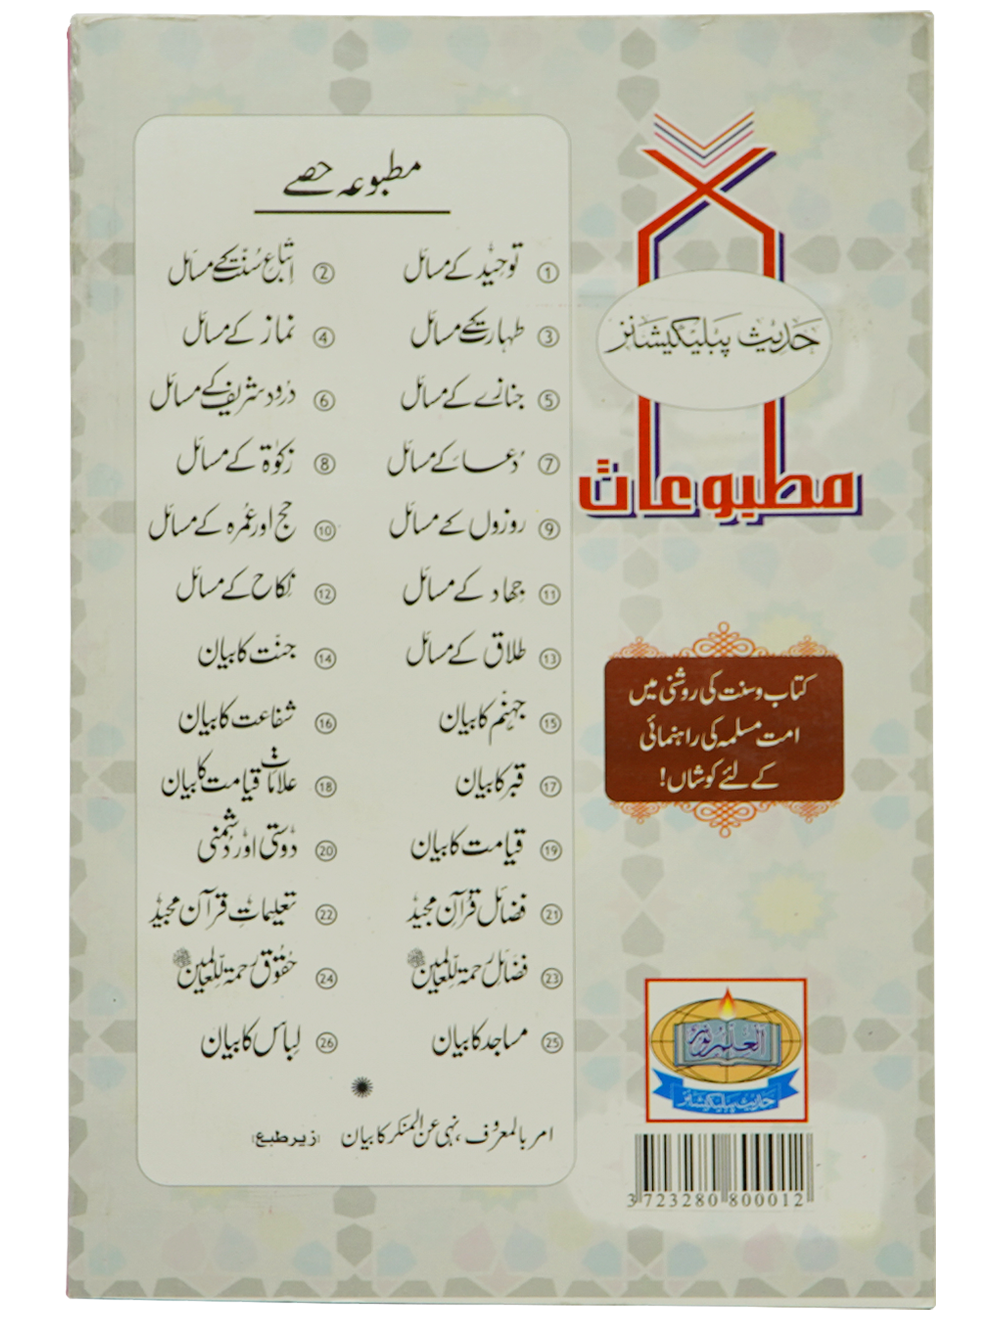 حدیث پبلیکیشنز
مطبوعات
کتاب و سنت کی روشنی میں
امت مسلمہ کی راہنمائی
کے لئے کوشاں!
مطبوعہ حصے
① توحید کے مسائل ② اتباع سُنّت کے مسائل
③ طہارت کے مسائل ④ نماز کے مسائل
⑤ جنازے کے مسائل ⑥ درود شریف کے مسائل
⑦ دُعا کے مسائل ⑧ زکوٰۃ کے مسائل
⑨ روزوں کے مسائل ⑩ حج اور عمرہ کے مسائل
⑪ جہاد کے مسائل ⑫ نکاح کے مسائل
⑬ طلاق کے مسائل ⑭ جنت کا بیان
⑮ جہنم کا بیان ⑯ شفاعت کا بیان
⑰ قبر کا بیان ⑱ علاماتِ قیامت کا بیان
⑲ قیامت کا بیان ⑳ دوستی اور دشمنی
㉑ فضائل قرآن مجید ㉒ تعلیماتِ قرآن مجید
㉓ فضائل رحمۃ للعالمین ﷺ ㉔ حقوق رحمۃ للعالمین ﷺ
㉕ مساجد کا بیان ㉖ لباس کا بیان
امر بالمعروف، نہی عن المنکر کا بیان (زیر طبع)
العلم نور
حدیث پبلیکیشنز
3 723280 800012